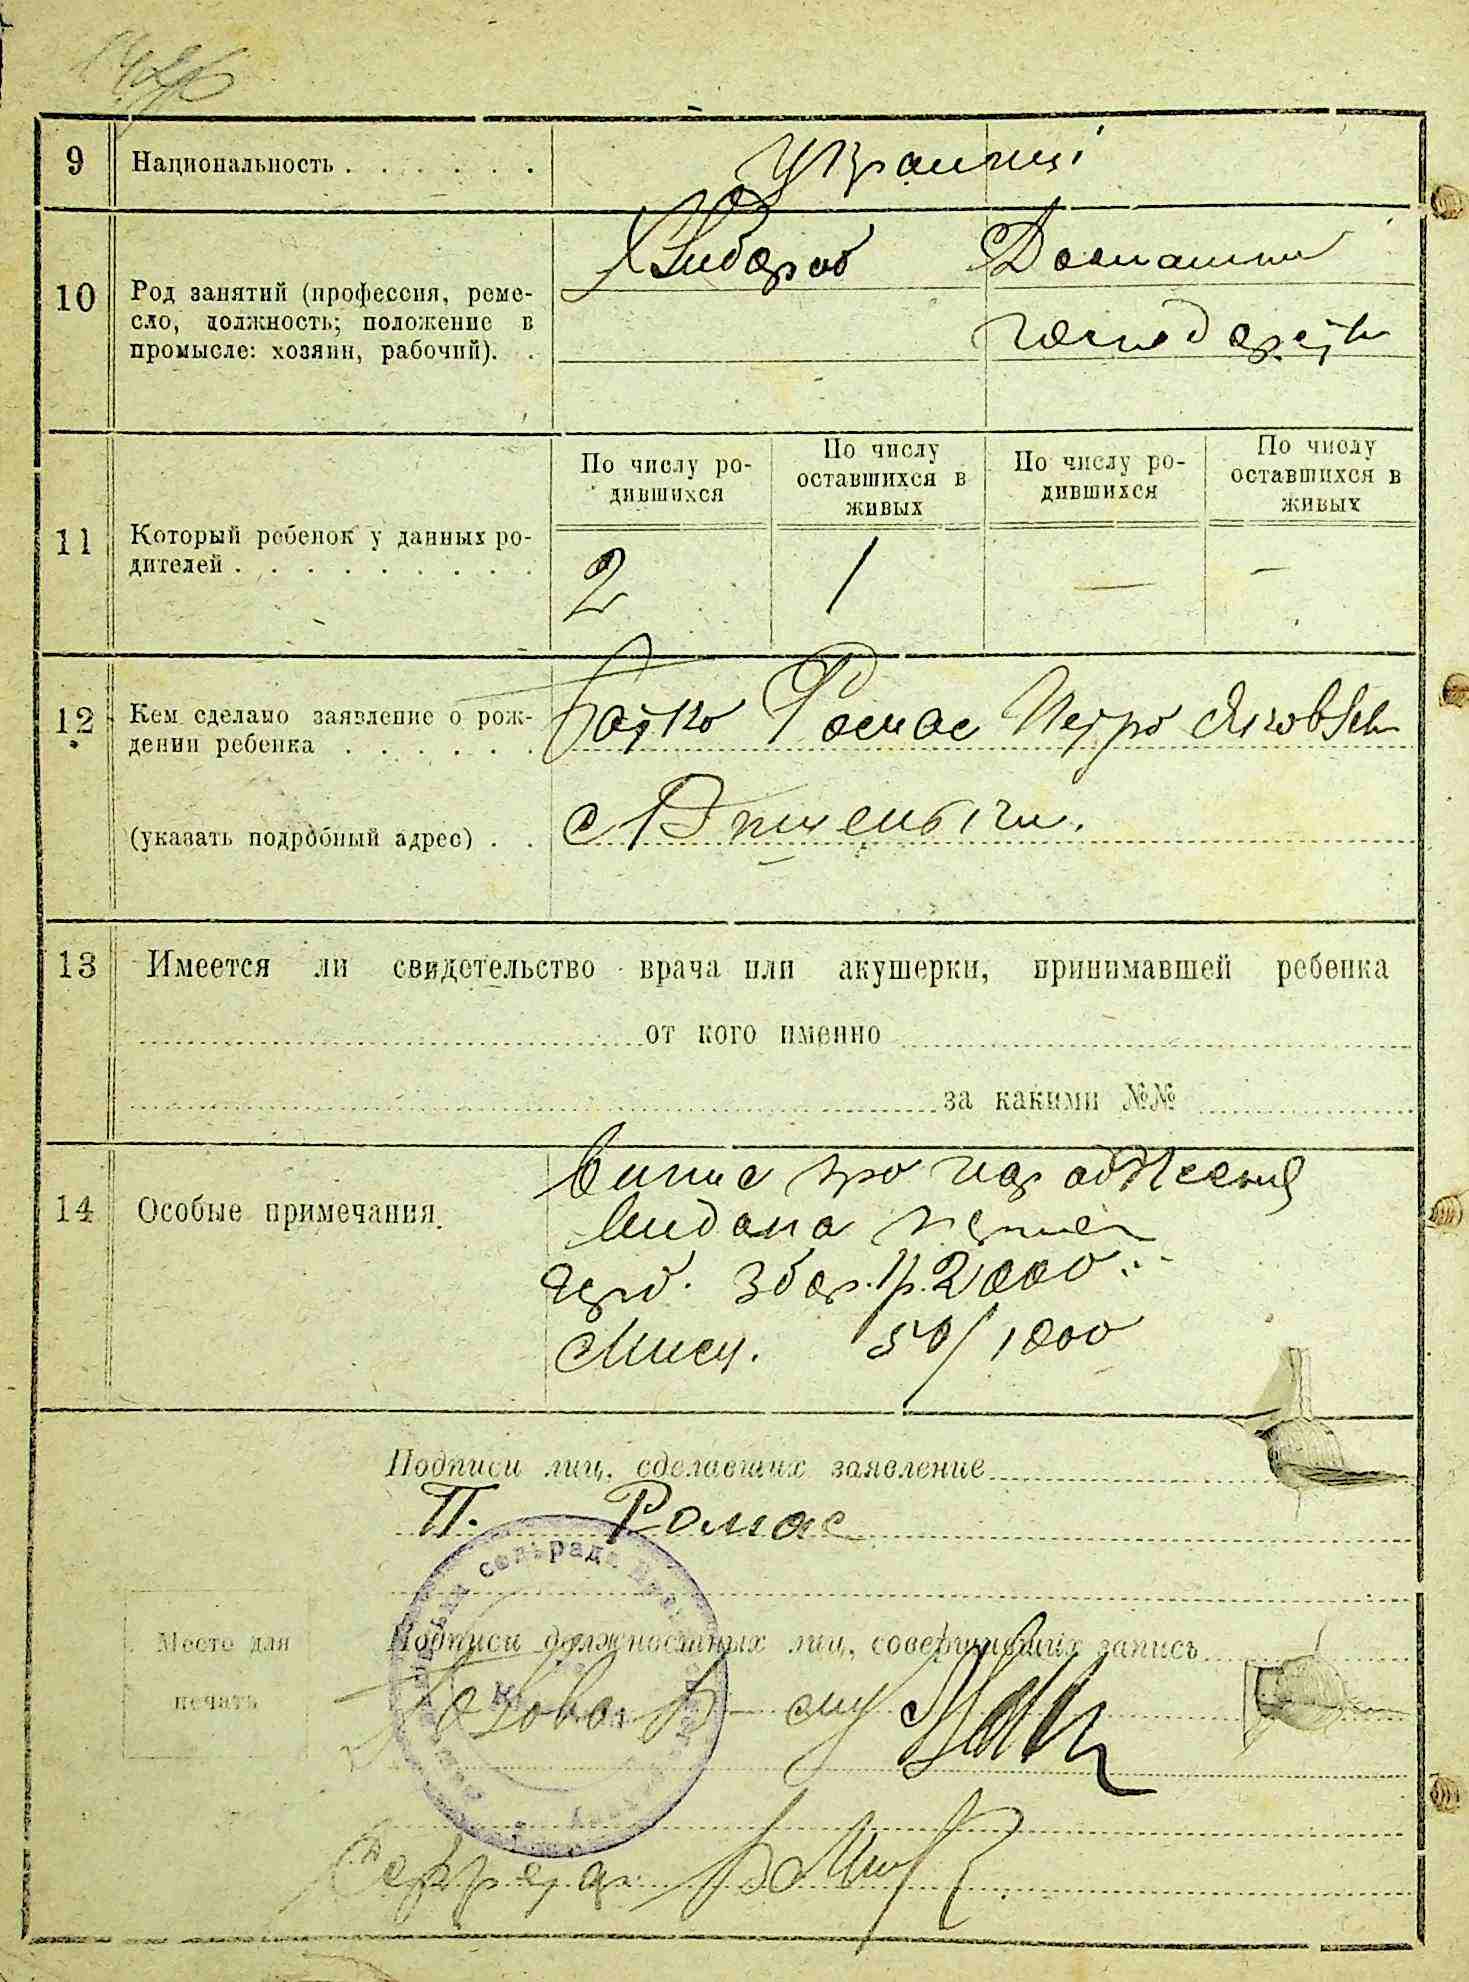 9 Национальность . . . . . .
Украинці
10 Род занятий (профессия, реме-
сло, должность; положение в
промысле: хозяин, рабочий). .
Хлибороб
Домашни
господарств
11 Который ребенок у данных ро-
дителей . . . . . . . . .
По числу ро-
дившихся
По числу
оставшихся в
живых
По числу ро-
дившихся
По числу
оставшихся в
живых
2 1 — —
12 Кем сделано заявление о рож-
дении ребенка . . . . . .
Батько Ромас Петро Якович
(указать подробный адрес) . .
с
13 Имеется ли свидетельство врача или акушерки, принимавшей ребенка
от кого именно
за какими №№
14 Особые примечания.
Випис про народження
видана
збор. 1р. 2000
Мисц. 50/1000
Подписи лиц, сделавших заявление
П. Ромас
Место для
печать
Подписи должностных лиц, совершивших запись
Голова
Секрета
сельрада